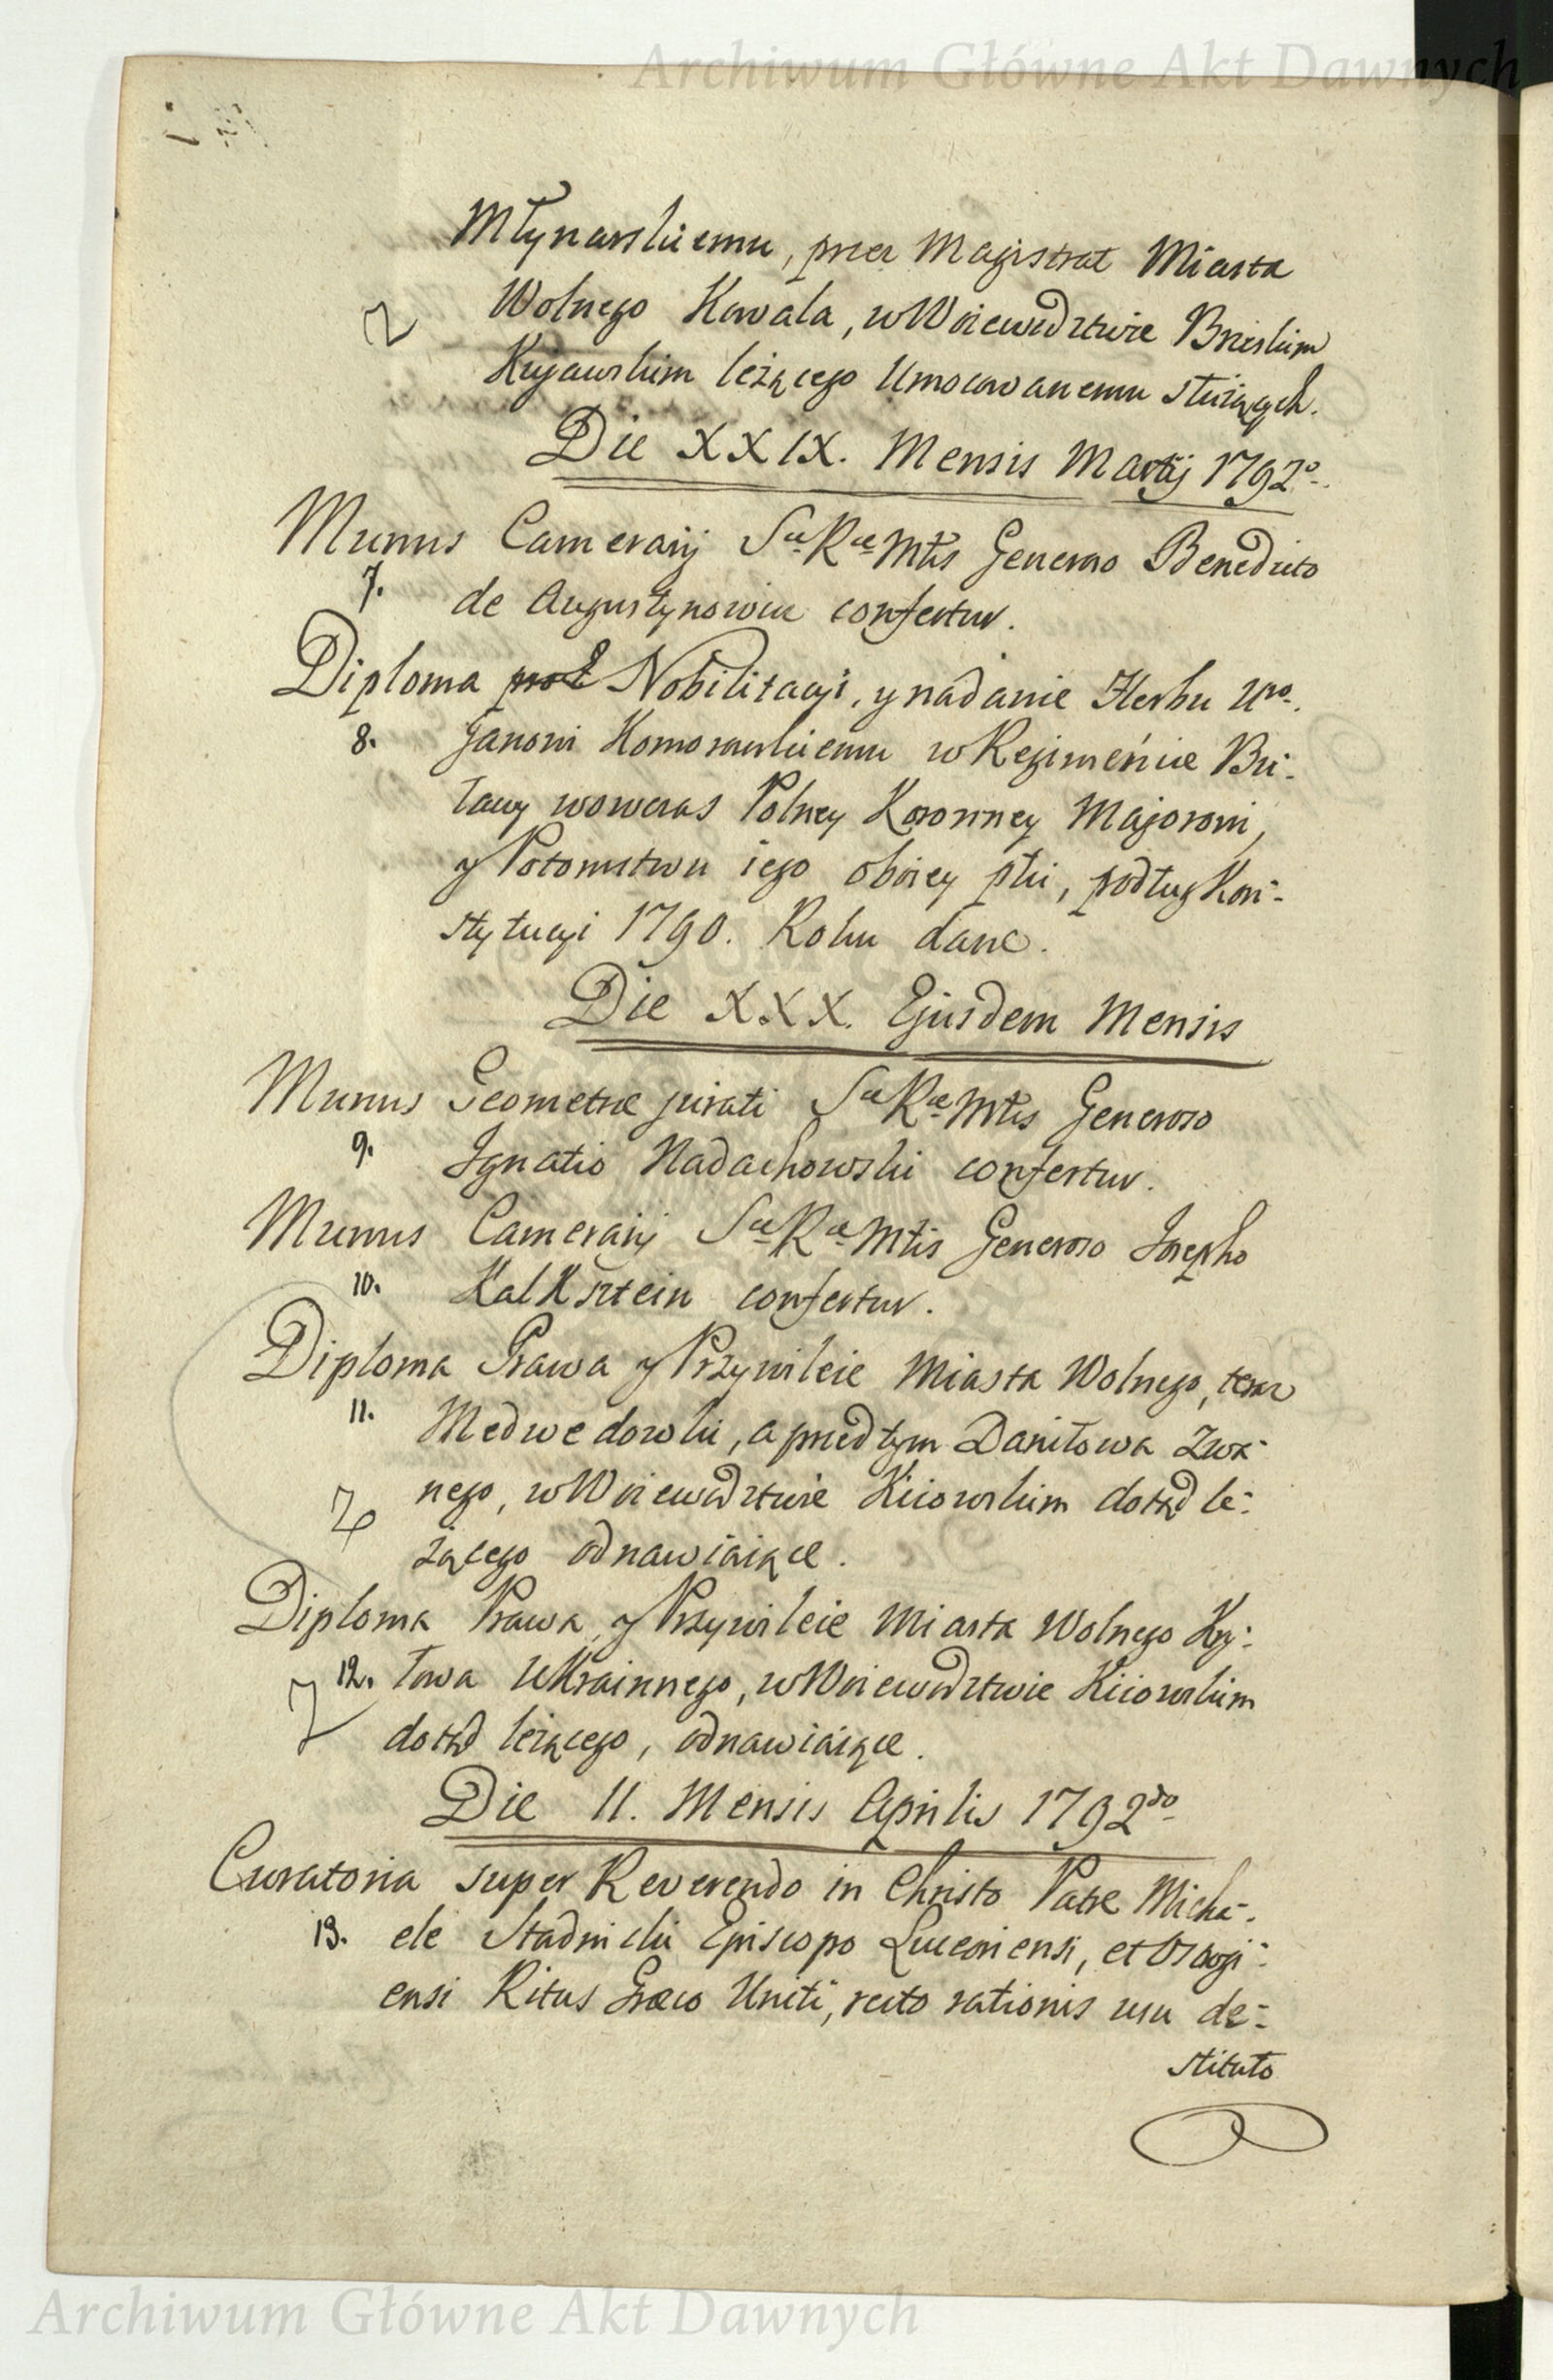 Archiwum Główne Akt Dawnych
Młynarskiemu, przez Magistrat Miasta
Wolnego Kowala, w Woiewodztwie Brzeskim
Kujawskim leżącego Umocowanemu służących.
Die XXIX. Mensis Martij 1792º.
Munus Camerarij Sæ Ræ Mtis Generoso Benedicto
7. de Augustynowicz confertur.
Diploma Nobilitacyi, y nadanie Herbu Uro.
8. Janowi Komorowskiemu w Regimeńcie Bu-
ławy wowczas Polney Koronney Majorowi,
y Potomstwu iego oboiey płci, podług Kon-
stytucyi 1790. Roku dane.
Die XXX. Ejusdem Mensis
Munus Geometræ jurati Sæ Ræ Mtis Generoso
9. Ignatio Nadachowski confertur.
Munus Camerarij Sæ Ræ Mtis Generoso Josepho
10. KalKsztein confertur.
Diploma Prawa y Przywileie Miasta Wolnego, teraz
11. Medwedowki, a przedtym Daniłowa Zwa-
nego, w Woiewodztwie Kiiowskim dotąd le-
żącego odnawiaiące.
Diploma Prawa, y Przywileie Miasta Wolnego Kry-
12. łowa UKrainnego, w Woiewodztwie Kiiowskim
dotąd leżącego, odnawiaiące.
Die II. Mensis Aprilis 1792do
Curatoria super Reverendo in Christo Patre Micha-
13. ele Stadnicki Episcopo Luceoriensi, et Ostrogi-
ensi Ritus Græco Uniti, recto rationis usu de-
stituto
Archiwum Główne Akt Dawnych